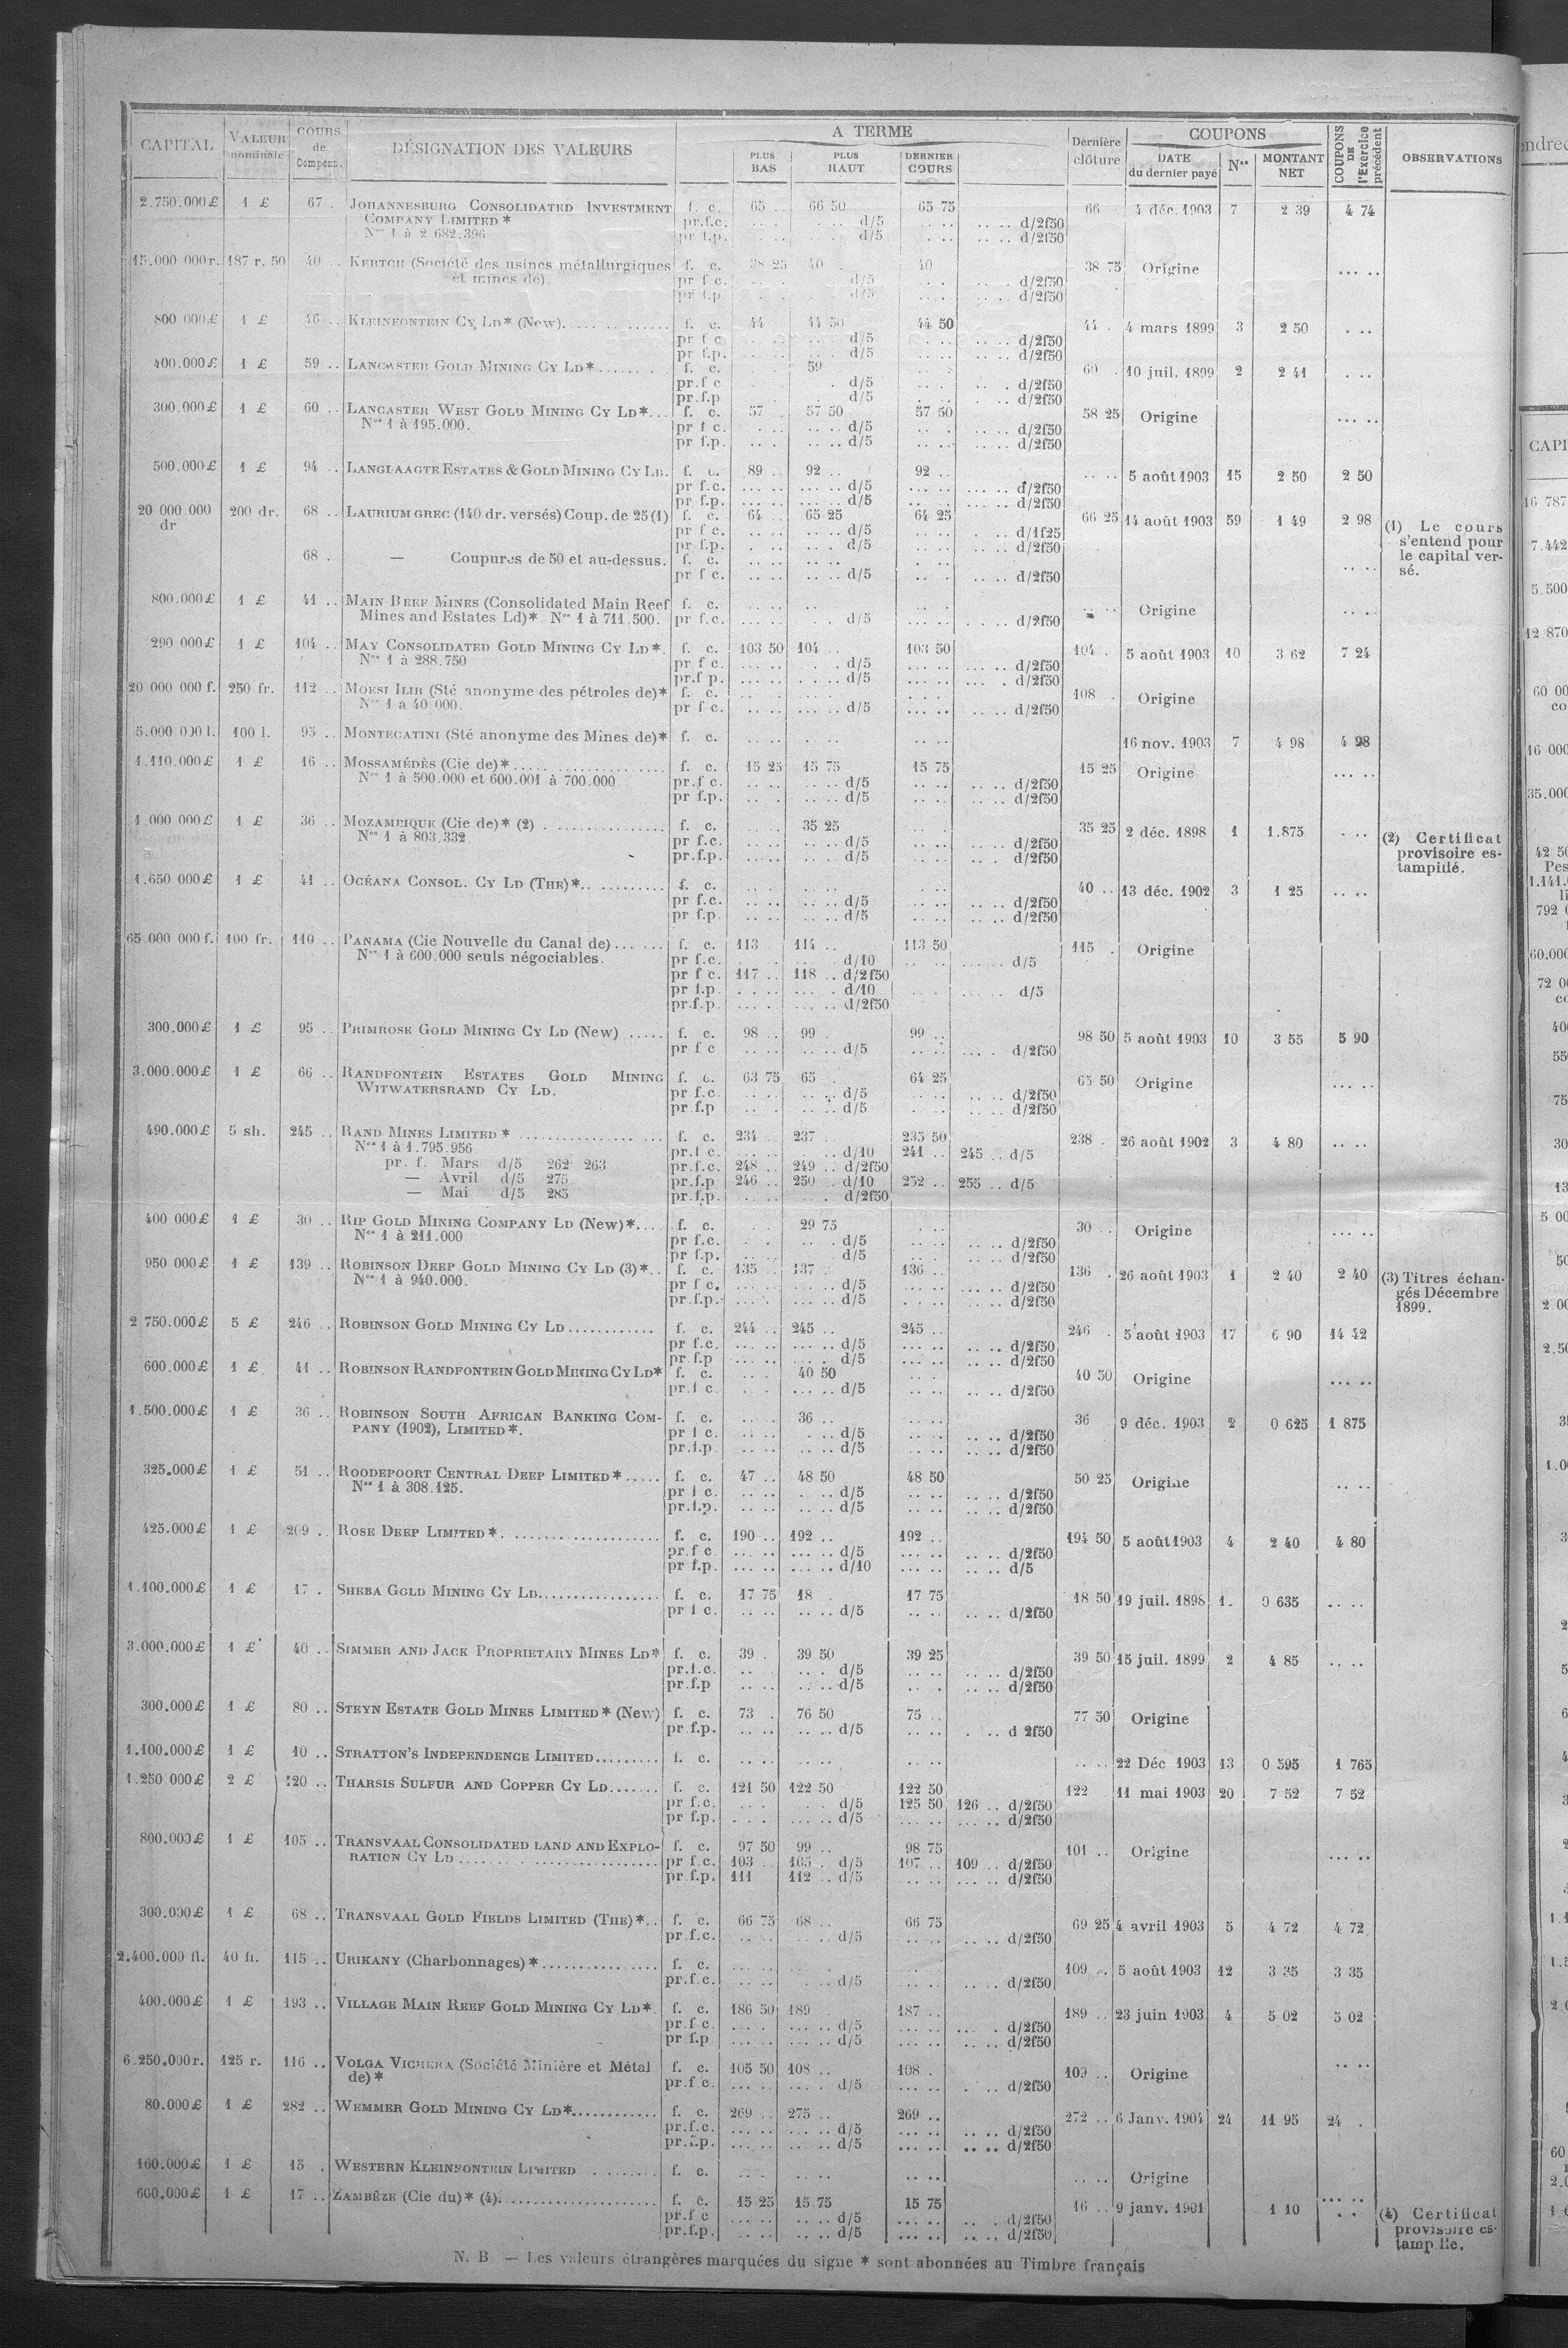 CAPITAL VALEUR nominale COURS de Compens. DÉSIGNATION DES VALEURS A TERME PLUS BAS PLUS HAUT DERNIER COURS Dernière clôture COUPONS DATE du dernier payé Nos MONTANT NET COUPONS DE l'Exercice précédent OBSERVATIONS
2.750.000£ 1 £ 67 . JOHANNESBURG CONSOLIDATED INVESTMENT f. c. 65 .. 66 50 65 75 66 4 déc. 1903 7 2 39 4 74
COMPANY LIMITED * pr.f.c. d/5 d/2f50
Nos 1 à 2 682.396 pr f.p. d/5 d/2f50
15.000 000 r. 187 r. 50 40 .. KERTCH (Société des usines métallurgiques f. c. 38 25 40 40 38 75 Origine
et mines de). pr f c. d/5 d/2f50
pr f.p d/5 d/2f50
800 000£ 1 £ 46 .. KLEINFONTEIN CY LD* (New). f. c. 44 44 50 44 50 44 . 4 mars 1899 3 2 50
pr f c d/5 d/2f50
pr f.p. d/5 d/2f50
400.000£ 1 £ 59 .. LANCASTER GOLD MINING CY LD* f. c. 59 60 . 10 juil. 1899 2 2 41
pr.f c d/5 d/2f50
pr.f.p d/5 d/2f50
300.000£ 1 £ 60 .. LANCASTER WEST GOLD MINING CY LD*... f. c. 57 57 50 57 50 58 25 Origine
Nos 1 à 195.000. pr f c. d/5 d/2f50
pr f.p. d/5 d/2f50
500.000£ 1 £ 94 .. LANGLAAGTE ESTATES & GOLD MINING CY LD. f. c. 89 .. 92 .. 92 .. 5 août 1903 15 2 50 2 50
pr f.c. d/5 d/2f50
pr f.p. d/5 d/2f50
20 000.000 dr 200 dr. 68 .. LAURIUM GREC (140 dr. versés) Coup. de 25 (1) f. c. 64 .. 65 25 64 25 66 25 14 août 1903 59 1 49 2 98 (1) Le cours s'entend pour le capital versé.
pr f c. d/5 d/1f25
pr f.p. d/5 d/2f50
68 . — Coupures de 50 et au-dessus. f. c.
pr f c. d/5 d/2f50
800.000£ 1 £ 41 .. MAIN REEF MINES (Consolidated Main Reef f. c. Origine
Mines and Estates Ld)* Nos 1 à 711.500. pr f.c. d/5 d/2f50
290 000£ 1 £ 104 .. MAY CONSOLIDATED GOLD MINING CY LD*. f. c. 103 50 104 .. 103 50 104 . 5 août 1903 10 3 62 7 24
Nos 1 à 288.750 pr f c. d/5 d/2f50
pr.f p. d/5 d/2f50
20 000 000 f. 250 fr. 112 .. MORSI ILIR (Sté anonyme des pétroles de)* f. c. 108 . Origine
Nos 1 à 40 000. pr f c. d/5 d/2f50
5.000 000 l. 100 l. 95 .. MONTECATINI (Sté anonyme des Mines de)* f. c. 16 nov. 1903 7 4 98 4 98
1.110.000£ 1 £ 16 .. MOSSAMÉDÈS (Cie de)* f. c. 15 25 15 75 15 75 15 25 Origine
Nos 1 à 500.000 et 600.001 à 700.000 pr.f c. d/5 d/2f50
pr f.p. d/5 d/2f50
1.000 000£ 1 £ 36 .. MOZAMBIQUE (Cie de)* (2) f. c. 35 25 35 25 2 déc. 1898 1 1.875 (2) Certificat provisoire estampillé.
Nos 1 à 803.332. pr f.c. d/5 d/2f50
pr.f.p. d/5 d/2f50
1.650 000£ 1 £ 41 .. OCÉANA CONSOL. CY LD (THE)* f. c. 40 .. 13 déc. 1902 3 1 25
pr f.c. d/5 d/2f50
pr f.p. d/5 d/2f50
65.000 000 f. 100 fr. 110 .. PANAMA (Cie Nouvelle du Canal de) f. c. 113 114 .. 113 50 115 . Origine
Nos 1 à 600.000 seuls négociables. pr f.c. d/10 d/5
pr f c. 117 .. 118 .. d/2f50
pr f.p d/10 d/5
pr.f.p. d/2f50
300.000£ 1 £ 95 .. PRIMROSE GOLD MINING CY LD (New) f. c. 98 .. 99 99 .. 98 50 5 août 1903 10 3 55 5 90
pr f c d/5 d/2f50
3.000.000£ 1 £ 66 .. RANDFONTEIN ESTATES GOLD MINING f. c. 63 75 65 64 25 65 50 Origine
WITWATERSRAND CY LD. pr f.c. d/5 d/2f50
pr f.p d/5 d/2f50
490.000£ 5 sh. 245 .. RAND MINES LIMITED * f. c. 234 .. 237 235 50 238 . 26 août 1902 3 4 80
Nos 1 à 1.795.956 pr.f c. d/10 241 .. 245 .. d/5
pr. f. Mars d/5 262 263 pr.f.c. 248 .. 249 .. d/2f50
— Avril d/5 275 pr.f.p 246 .. 250 . d/10 252 .. 255 .. d/5
— Mai d/5 285 pr.f.p. d/2f50
400 000£ 1 £ 30 .. RIP GOLD MINING COMPANY LD (New)* f. c. 29 75 30 .. Origine
Nos 1 à 211.000 pr f.c. d/5 d/2f50
pr f.p. d/5 d/2f50
950 000£ 1 £ 139 .. ROBINSON DEEP GOLD MINING CY LD (3)*.. f. c. 135 137 136 .. 136 . 26 août 1903 1 2 40 2 40 (3) Titres échangés Décembre 1899.
Nos 1 à 940.000. pr f c. d/5 d/2f50
pr.f.p. d/5 d/2f50
2 750.000£ 5 £ 246 .. ROBINSON GOLD MINING CY LD f. c. 244 .. 245 .. 245 .. 246 . 5 août 1903 17 6 90 14 42
pr f.c. d/5 d/2f50
pr f.p d/5 d/2f50
600.000£ 1 £ 41 .. ROBINSON RANDFONTEIN GOLD MINING CY LD* f. c. 40 50 40 50 Origine
pr.f c. d/5 d/2f50
1.500.000£ 1 £ 36 .. ROBINSON SOUTH AFRICAN BANKING COM- f. c. 36 .. 36 9 déc. 1903 2 0 625 1 875
PANY (1902), LIMITED*. pr f c. d/5 d/2f50
pr.f.p d/5 d/2f50
325.000£ 1 £ 51 .. ROODEPOORT CENTRAL DEEP LIMITED* f. c. 47 .. 48 50 48 50 50 25 Origine
Nos 1 à 308.125. pr f c. d/5 d/2f50
pr.f.p. d/5 d/2f50
425.000£ 1 £ 209 .. ROSE DEEP LIMITED*. f. c. 190 .. 192 .. 192 .. 194 50 5 août 1903 4 2 40 4 80
pr.f c d/5 d/2f50
pr f.p. d/10 d/5
1.100.000£ 1 £ 17 . SHEBA GOLD MINING CY LD f. c. 17 75 18 17 75 18 50 19 juil. 1898 1. 0 635
pr f c. d/5 d/2f50
3.000.000£ 1 £ 40 .. SIMMER AND JACK PROPRIETARY MINES LD* f. c. 39 . 39 50 39 25 39 50 15 juil. 1899 2 4 85
pr.f.c. d/5 d/2f50
pr.f.p d/5 d/2f50
300.000£ 1 £ 80 .. STEYN ESTATE GOLD MINES LIMITED* (New) f. c. 73 . 76 50 75 .. 77 50 Origine
pr.f.p. d/5 d 2f50
1.100.000£ 1 £ 10 .. STRATTON'S INDEPENDENCE LIMITED f. c. 22 Déc 1903 13 0 595 1 765
1.250 000£ 2 £ 120 .. THARSIS SULFUR AND COPPER CY LD f. c. 121 50 122 50 122 50 122 11 mai 1903 20 7 52 7 52
pr f.c. d/5 125 50 126 .. d/2f50
pr f.p. d/5 d/2f50
800.000£ 1 £ 105 .. TRANSVAAL CONSOLIDATED LAND AND EXPLO- f. c. 97 50 99 .. 98 75 101 .. Origine
RATION CY LD pr f.c. 103 105 . d/5 107 .. 109 .. d/2f50
pr.f.p. 111 112 .. d/5 d/2f50
300.000£ 1 £ 68 .. TRANSVAAL GOLD FIELDS LIMITED (THE)*.. f. c. 66 75 68 .. 66 75 69 25 4 avril 1903 5 4 72 4 72
pr.f.c. d/5 d/2f50
2.400.000 fl. 40 fl. 115 .. URIKANY (Charbonnages)* f. c. 109 .. 5 août 1903 12 3 35 3 35
pr.f.c. d/5 d/2f50
400.000£ 1 £ 193 .. VILLAGE MAIN REEF GOLD MINING CY LD*. f. c. 186 50 189 187 .. 189 .. 23 juin 1903 4 5 02 5 02
pr.f c. d/5 d/2f50
pr f.p d/5 d/2f50
6.250.000 r. 125 r. 116 .. VOLGA VICHERA (Société Minière et Métal f. c. 105 50 108 .. 108 . 109 .. Origine
de)* pr.f c. d/5 d/2f50
80.000£ 1 £ 282 .. WEMMER GOLD MINING CY LD* f. c. 269 .. 275 .. 269 .. 272 .. 6 Janv. 1904 24 11 95 24 .
pr.f.c. d/5 d/2f50
pr.f.p. d/5 d/2f50
160.000£ 1 £ 15 . WESTERN KLEINFONTEIN LIMITED f. c. Origine
600,000£ 1 £ 17 .. ZAMBÈZE (Cie du)* (4). f. c. 15 25 15 75 15 75 16 .. 9 janv. 1901 1 10 (4) Certificat provisoire estampillé.
pr.f c d/5 d/2f50
pr.f.p. d/5 d/2f50
N. B — Les valeurs étrangères marquées du signe * sont abonnées au Timbre français